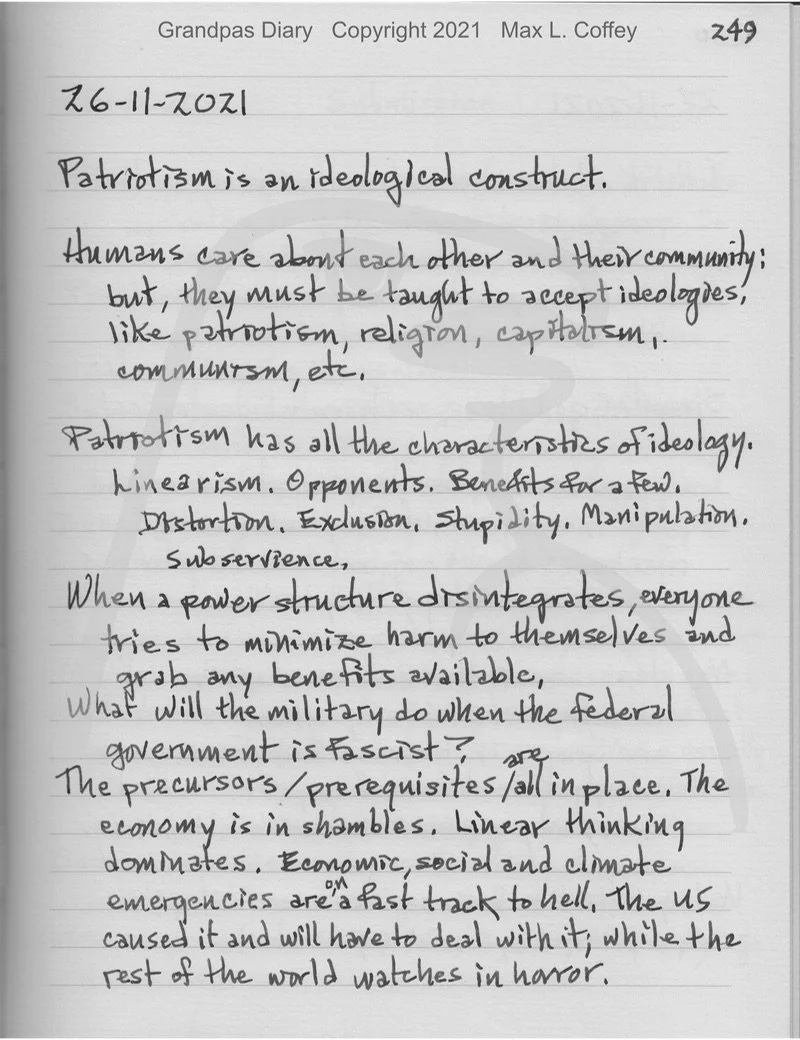 Grandpas Diary Copyright 2021 Max L. Coffey 249
26-11-2021
Patriotism is an ideological construct.
Humans care about each other and their community;
but, they must be taught to accept ideologies,
like patriotism, religion, capitalism,
communism, etc.
Patriotism has all the characteristics of ideology.
Linearism. Opponents. Benefits for a few.
Distortion. Exclusion. Stupidity. Manipulation.
Subservience.
When a power structure disintegrates, everyone
tries to minimize harm to themselves and
grab any benefits available.
What will the military do when the federal
government is fascist?
The precursors/prerequisites are all in place. The
economy is in shambles. Linear thinking
dominates. Economic, social and climate
emergencies are on a fast track to hell. The US
caused it and will have to deal with it; while the
rest of the world watches in horror.